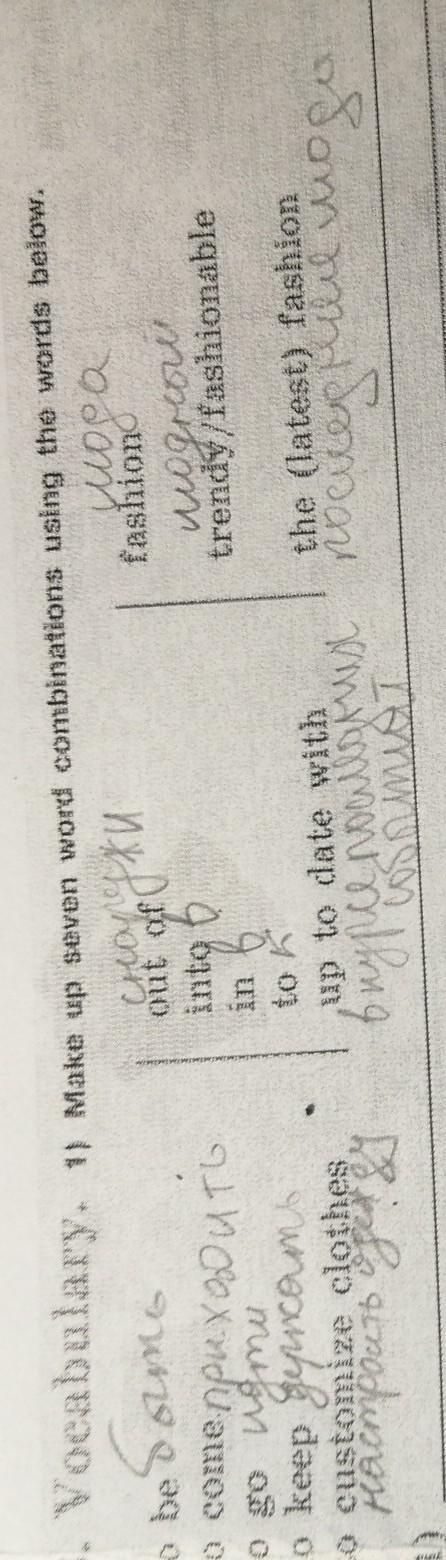 . Vocabulary. 1) Make up seven word combinations using the words below.
быть снаружи мода
o be out of fashion
приходить модный
o come into в trendy/fashionable
o go идти in в
o keep держать to к the (latest) fashion
o customize clothes up to date with последние моды
настроить одежду в курсе последних событий